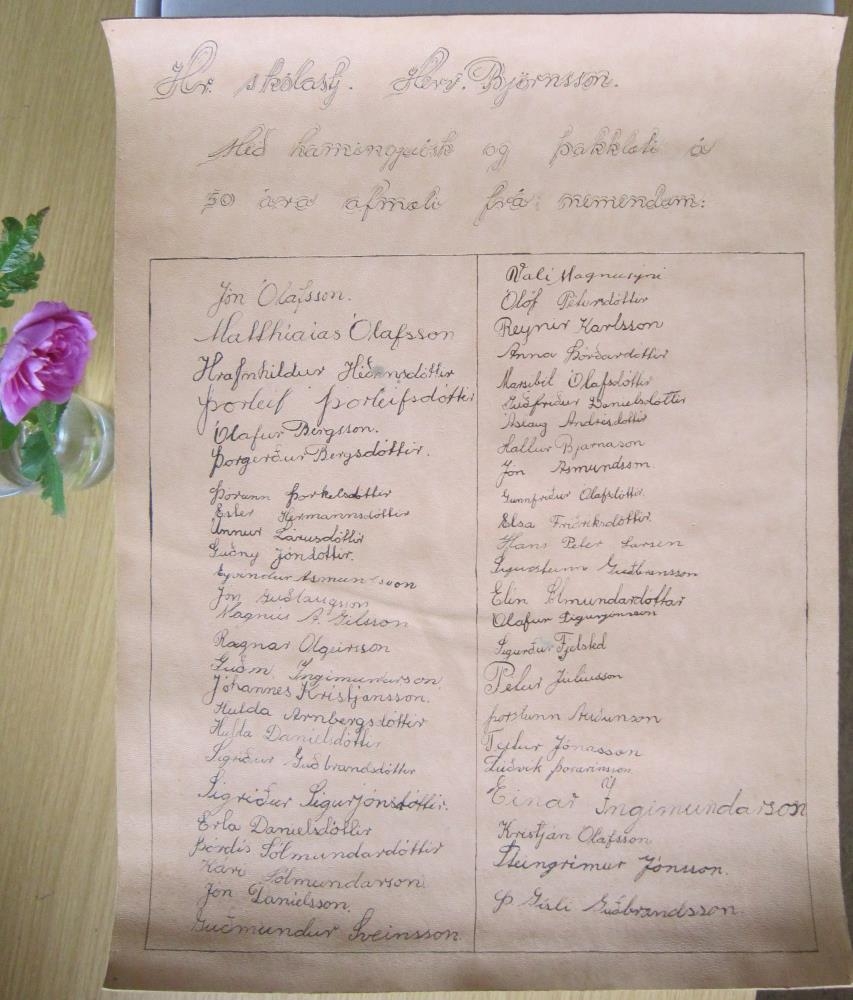 Hr. skólastj. Herv. Björnsson.
Með hamingjuósk og þakklæti á
50 ára afmæli frá nemendum:
Jón Ólafsson.
Matthiaias Ólafsson
Hrafnhildur Héðinsdóttir
Þorleif Þorleifsdóttir
Ólafur Bergsson.
Þorgerður Bergsdóttir.
Þórunn Þorkelsdóttir
Ester Hermannsdóttir
Unnur Lárusdóttir
Guðný Jónsdóttir.
Eyvindur Asmundsson
Jón Guðlaugsson
Magnus A. Gilsson
Ragnar Olgeirsson
Guðm. Ingimundarson.
Jóhannes Kristjánsson.
Hulda Arnbergsdóttir
Hulda Danielsdóttir
Sigríður Guðbrandsdóttir
Sigríður Sigurjónsdóttir.
Erla Danielsdóttir
Þórdís Sólmundardóttir
Kári Sólmundarson
Jón Danielsson.
Guðmundur Sveinsson.
Vali Magnusyni
Ólöf Pétursdóttir
Reynir Karlsson
Anna Þórðardóttir
Marsibil Ólafsdóttir
Guðfríður Danielsdóttir
Áslaug Andrésdóttir
Hallur Bjarnason
Jón Asmundsson.
Gunnfríður Ólafsdóttir.
Elsa Friðriksdóttir.
Hans Peter Larsen
Sigursteinn Guðbransson
Elín Sólmundardóttar
Olafur Sigurjónsson
Sigurður Fjelsted
Pétur Júlíusson
Þorsteinn Auðunson
Teitur Jónasson
Lúðvík Þórarinsson
Einar Ingimundarson
Kristján Ólafsson
Steingrímur Jónsson.
Þ Gísli Guðbrandsson.